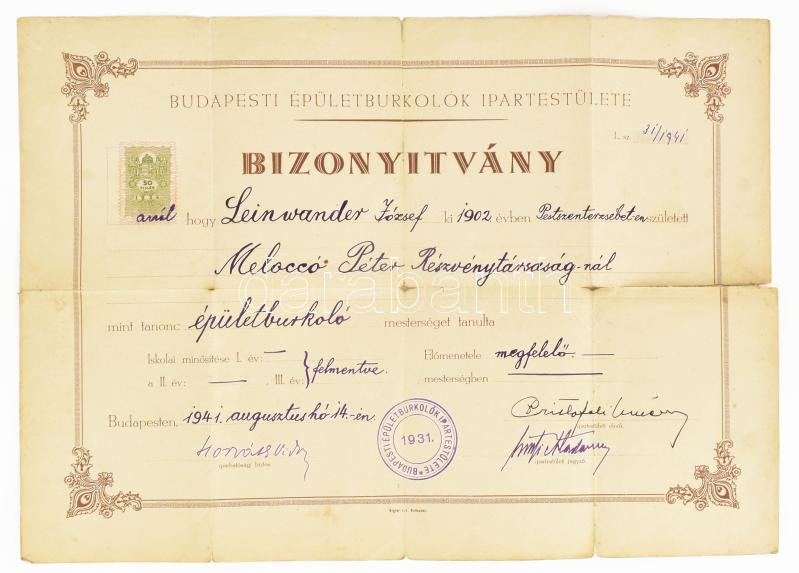 BUDAPESTI ÉPÜLETBURKOLÓK IPARTESTÜLETE
I. sz. 31/1941
BIZONYITVÁNY
50
FILLÉR
arról hogy Leinwander József ki 1902. évben Pestszenterzsébet-en született
Meloccó Péter Részvénytársaság-nál
darabanth
mint tanonc épületburkoló mesterséget tanulta
Iskolai minősitése I. év: — Előmenetele megfelelő. —
a II. év: — III. év: } felmentve. mesterségben
Budapesten, 1941. augusztus hó 14.-én.
BUDAPESTI ÉPÜLETBURKOLÓK IPARTESTÜLETE
1931.
iparhatósági biztos
ipartestületi elnök.
ipartestületi jegyző.